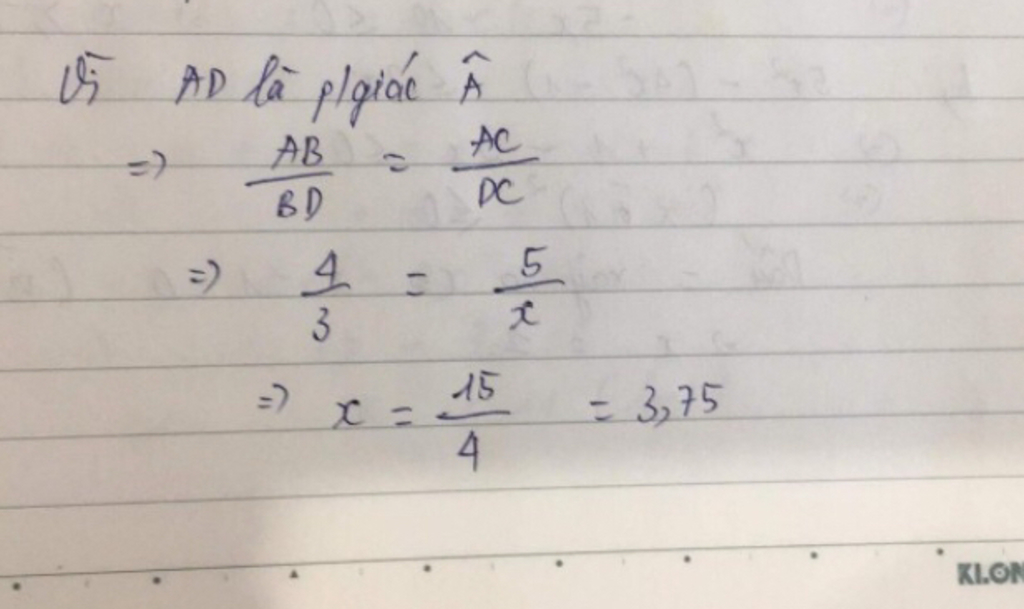 Vì AD là p/giác Â
=> AB/BD = AC/DC
=> 4/3 = 5/x
=> x = 15/4 = 3,75
KLON